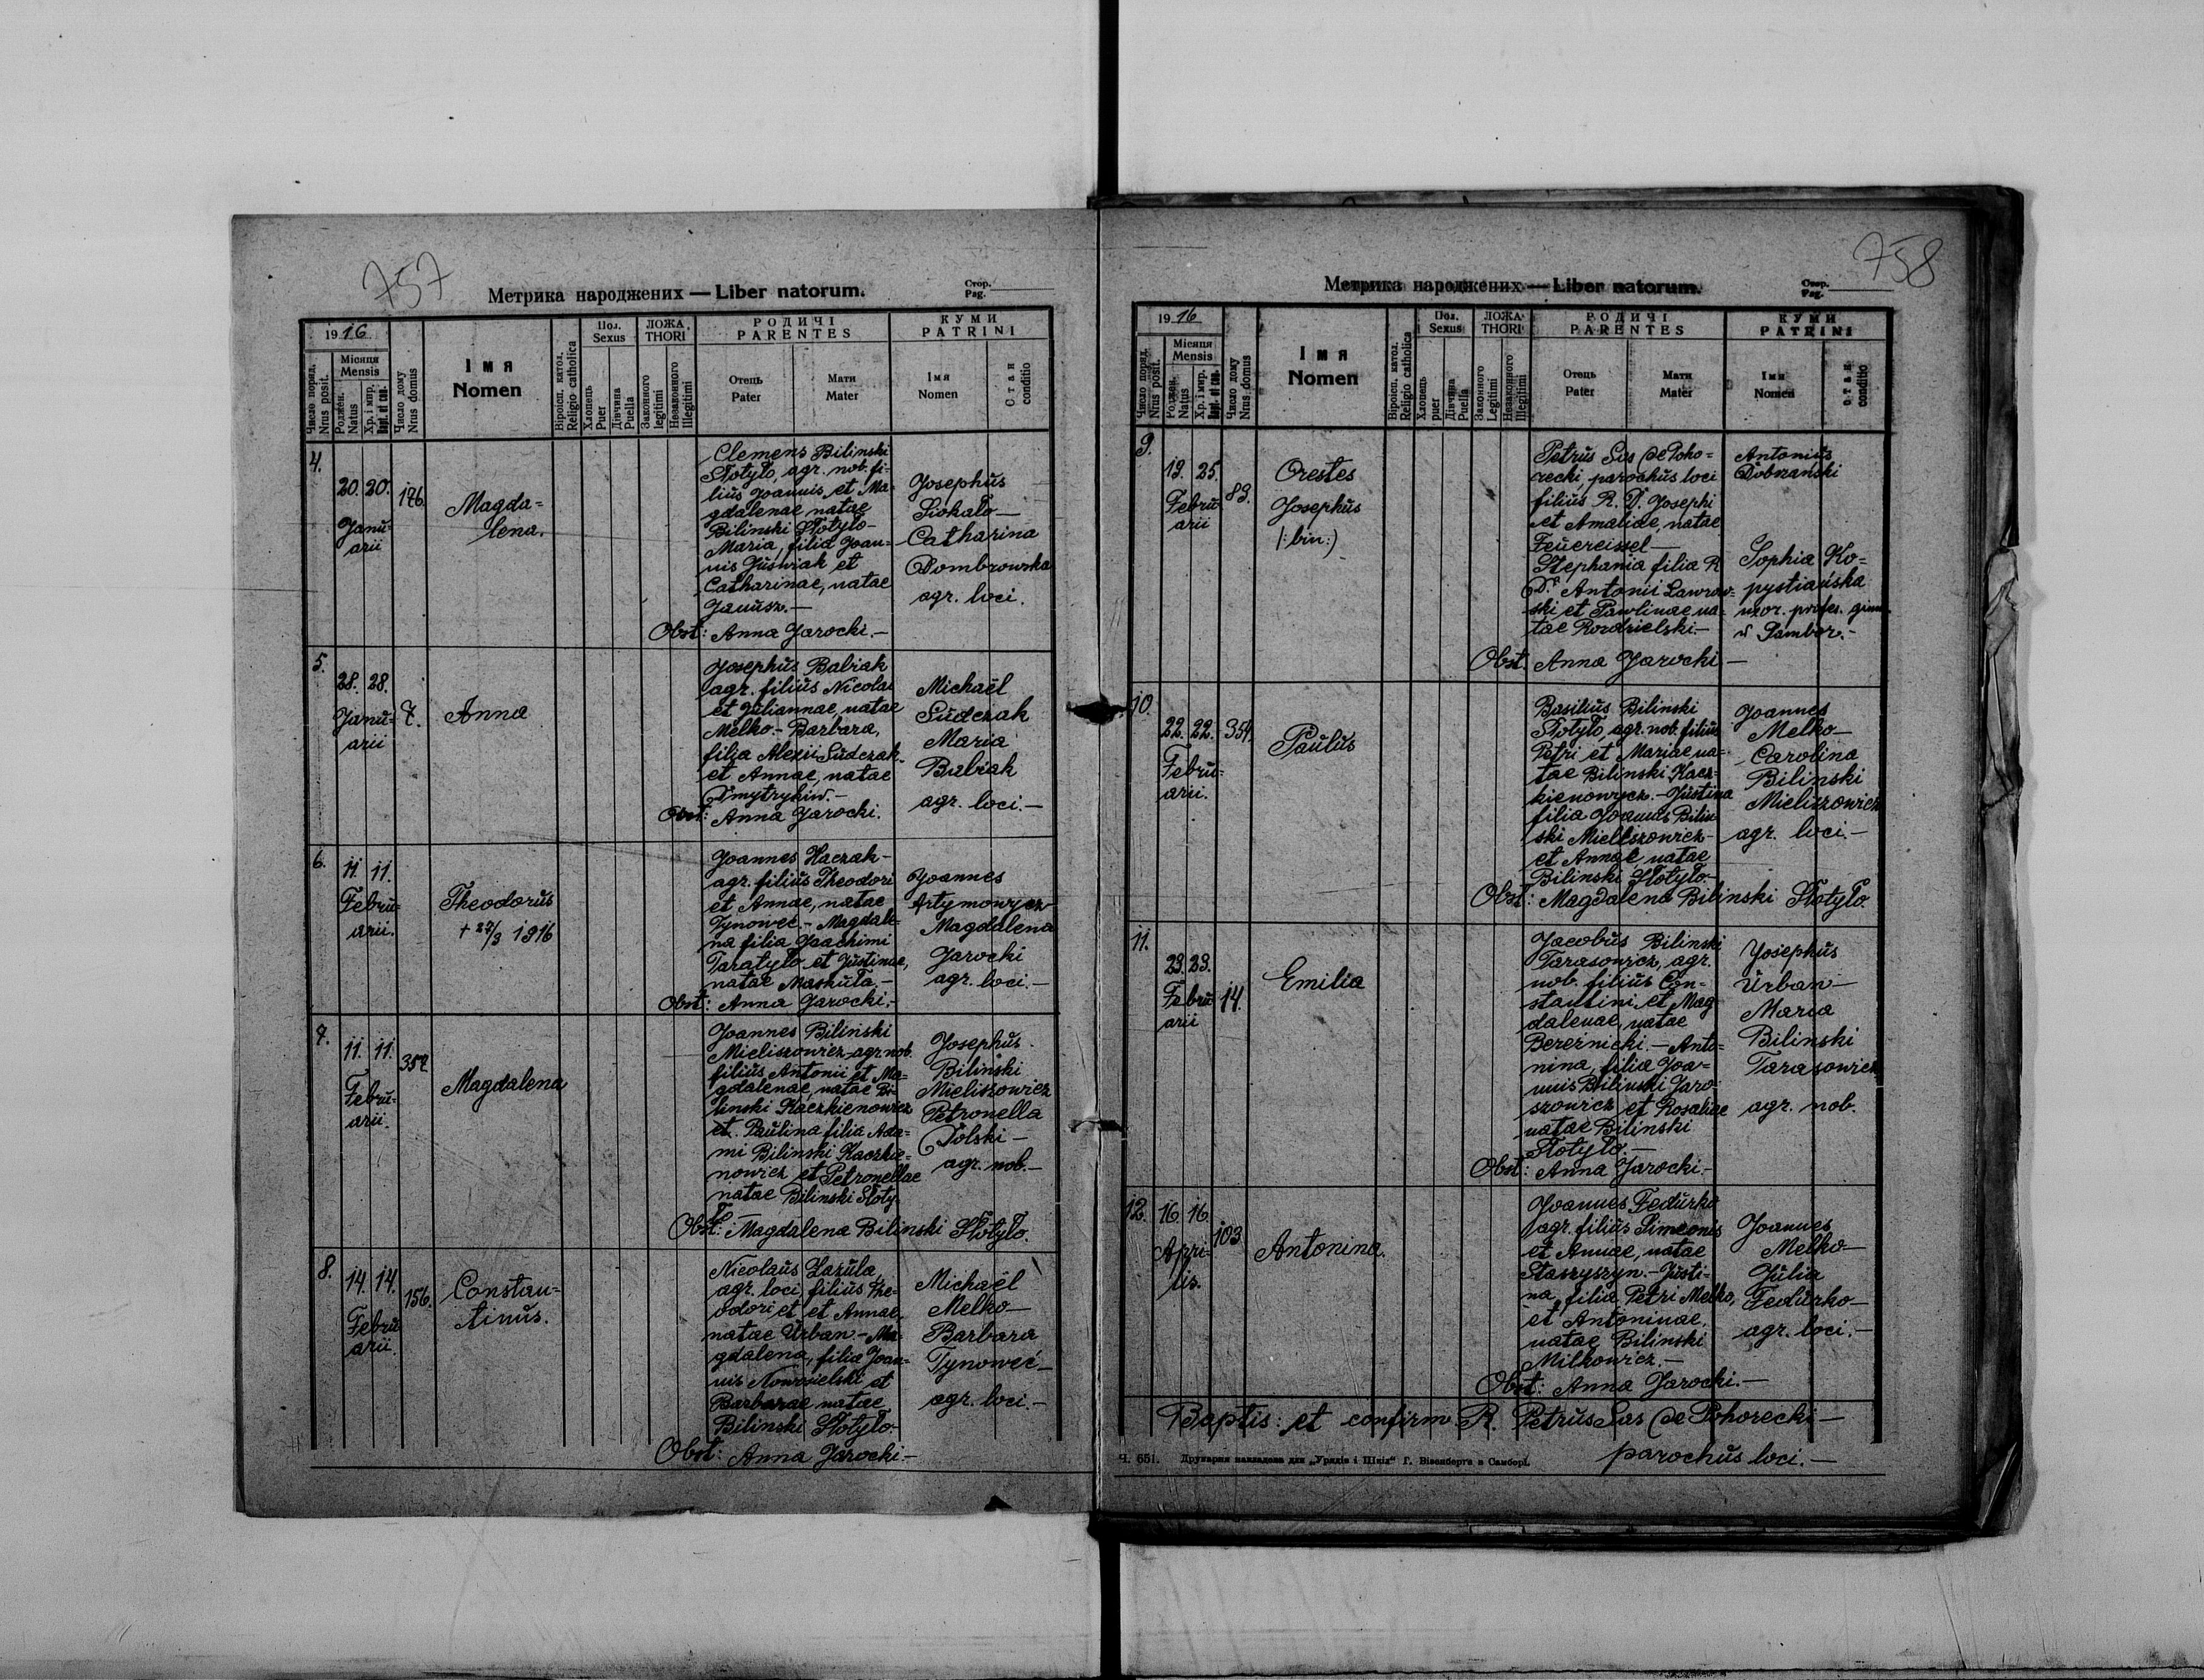 757
Метрика народжених — Liber natorum.
Стор.
Pag.
1916
Число поряд.
Nrus posit.
Місяця
Mensis
Роджен.
Natus
Хр. і мир.
Bapt. et con.
Число дому
Nrus domus
Імя
Nomen
Віроісп. катол.
Religio catholica
Пол.
Sexus
Хлопець
Puer
Дівчина
Puella
ЛОЖА
THORI
Законного
legitimi
Незаконного
Illegitimi
РОДИЧІ
PARENTES
Отець
Pater
Мати
Mater
КУМИ
PATRINI
Імя
Nomen
Стан
conditio
4.
20. 20.
Janu-
arii
126.
Magda-
lena.
Clemens Bilinski
Stotyło, agr. nob. fi-
lius Joannis et Ma-
gdalenae natae
Bilinski Stotyło-
Maria, filia Joan-
nis Juświak et
Catharinae, natae
Janusz.—
Josephus
Siokało—
Catharina
Dombrowska
agr. loci.
Obst: Anna Jarocki.—
5.
28. 28.
Janu-
arii
7.
Anna
Josephus Babiak
agr. filius Nicolai
et Juliannae, natae
Melko.- Barbara,
filia Alexii Sudczak-
et Annae, natae
Dmytrykiw.—
Michaël
Sudczak
Maria
Babiak
agr. loci.—
Obst: Anna Jarocki.
6.
11. 11.
Febru-
arii.
Theodorus
+ 27/3 1916
Joannes Kaczak-
agr. filius Theodori
et Annae, natae
Tynoweć.- Magdale-
na filia Joachimi
Taratyło et Justinae,
natae Maskuła.—
Joannes
Artymowycz
Magdalena
Jarocki
agr. loci.—
Obst: Anna Jarocki.-
7.
11. 11.
Febru-
arii.
357
Magdalena
Joannes Bilinski
Mieliszowicz-agr. nob.
filius Antonii et Ma-
gdalenae, natae Bi-
linski Kaczkienowicz
et Paulina filia Ada-
mi Bilinski Kaczkie-
nowicz et Petronellae
natae Bilinski Stoty-
ło
Josephus
Bilinski
Mieliszowicz
Petronella
Dolski—
agr. nob.—
Obst: Magdalena Bilinski Stotyło.
8.
14. 14.
Febru
arii.
156.
Constan-
tinus.
Nicolaus Lazula,
agr. loci, filius The-
odori et et Annae,
natae Urban.- Ma-
gdalena, filia Joan-
nis Nowosielski et
Barbarae natae
Bilinski Stotyło.-
Michaël
Melko—
Barbara
Tynoweć—
agr. loci.—
Obst: Anna Jarocki.—
758
Метрика народжених — Liber natorum.
Стор.
Pag.
1916
Число поряд.
Nrus posit.
Місяця
Mensis
Роджен.
Natus
Хр. і мир.
Bapt. et con.
Число дому
Nrus domus
Імя
Nomen
Віроісп. катол.
Religio catholica
Пол.
Sexus
Хлопець
puer
Дівчина
Puella
ЛОЖА
THORI
Законного
Legitimi
Незаконного
Illegitimi
РОДИЧІ
PARENTES
Отець
Pater
Мати
Mater
КУМИ
PATRINI
Імя
Nomen
Стан
conditio
9.
19. 25.
Febru
arii
83.
Orestes
Josephus
/:bin:)
Petrus Sas de Poho-
recki, parochus loci
filius R. D. Josephi
et Amaliae, natae
Feuereissel—
Stephania filia R.
Dr. Antonii Lawrow-
ski et Pawlinae na-
tae Rozdzielski.—
Antonius
Dobrzański
Sophia Ko-
pystiańska
uxor. profes. gimn.
w Sambor.-
Obst. Anna Jarocki—
10.
22. 22.
Febru-
arii.
354.
Paulus
Basilius Bilinski
Stotyło, agr. nob. filius
Petri et Mariae na-
tae Bilinski Kacz-
kienowycz.- Justina
filia Joannis Bilin
ski Mieliszowicz-
et Annae, natae
Bilinski Stotyło.-
Joannes
Melko—
Carolina
Bilinski
Mieliszowicz
agr. loci.—
Obst: Magdalena Bilinski Stotyło.
11.
23. 23.
Febru
arii
14.
Emilia
Jacobus Bilinski
Tarasowicz, agr.
nob. filius Con-
stantini et Mag
dalenae, natae
Bereznicki.— Anto-
nina, filia Joa-
nnis Bilinski Jaro-
szowicz et Rosaliae
natae Bilinski
Stotyło.—
Josephus
Urban—
Maria
Bilinski
Tarasowicz
agr. nob.
Obst: Anna Jarocki.-
12.
16. 16.
Apri-
lis.
103
Antonina.
Joannes Fedurko
agr. filius Simeonis
et Annae, natae
Staszyszyn.- Justi-
na, filia Petri Melko,
et Antoninae,
natae Bilinski
Milkowicz.—
Joannes
Melko—
Julia
Fedurko—
agr. loci.—
Obst: Anna Jarocki.—
Baptis: et confirm. R. Petrus Sas de Pohorecki—
parochus loci.—
Ч. 651. Друкарня накладова для „Урядів і Шкіл" Г. Візенберга в Самборі.